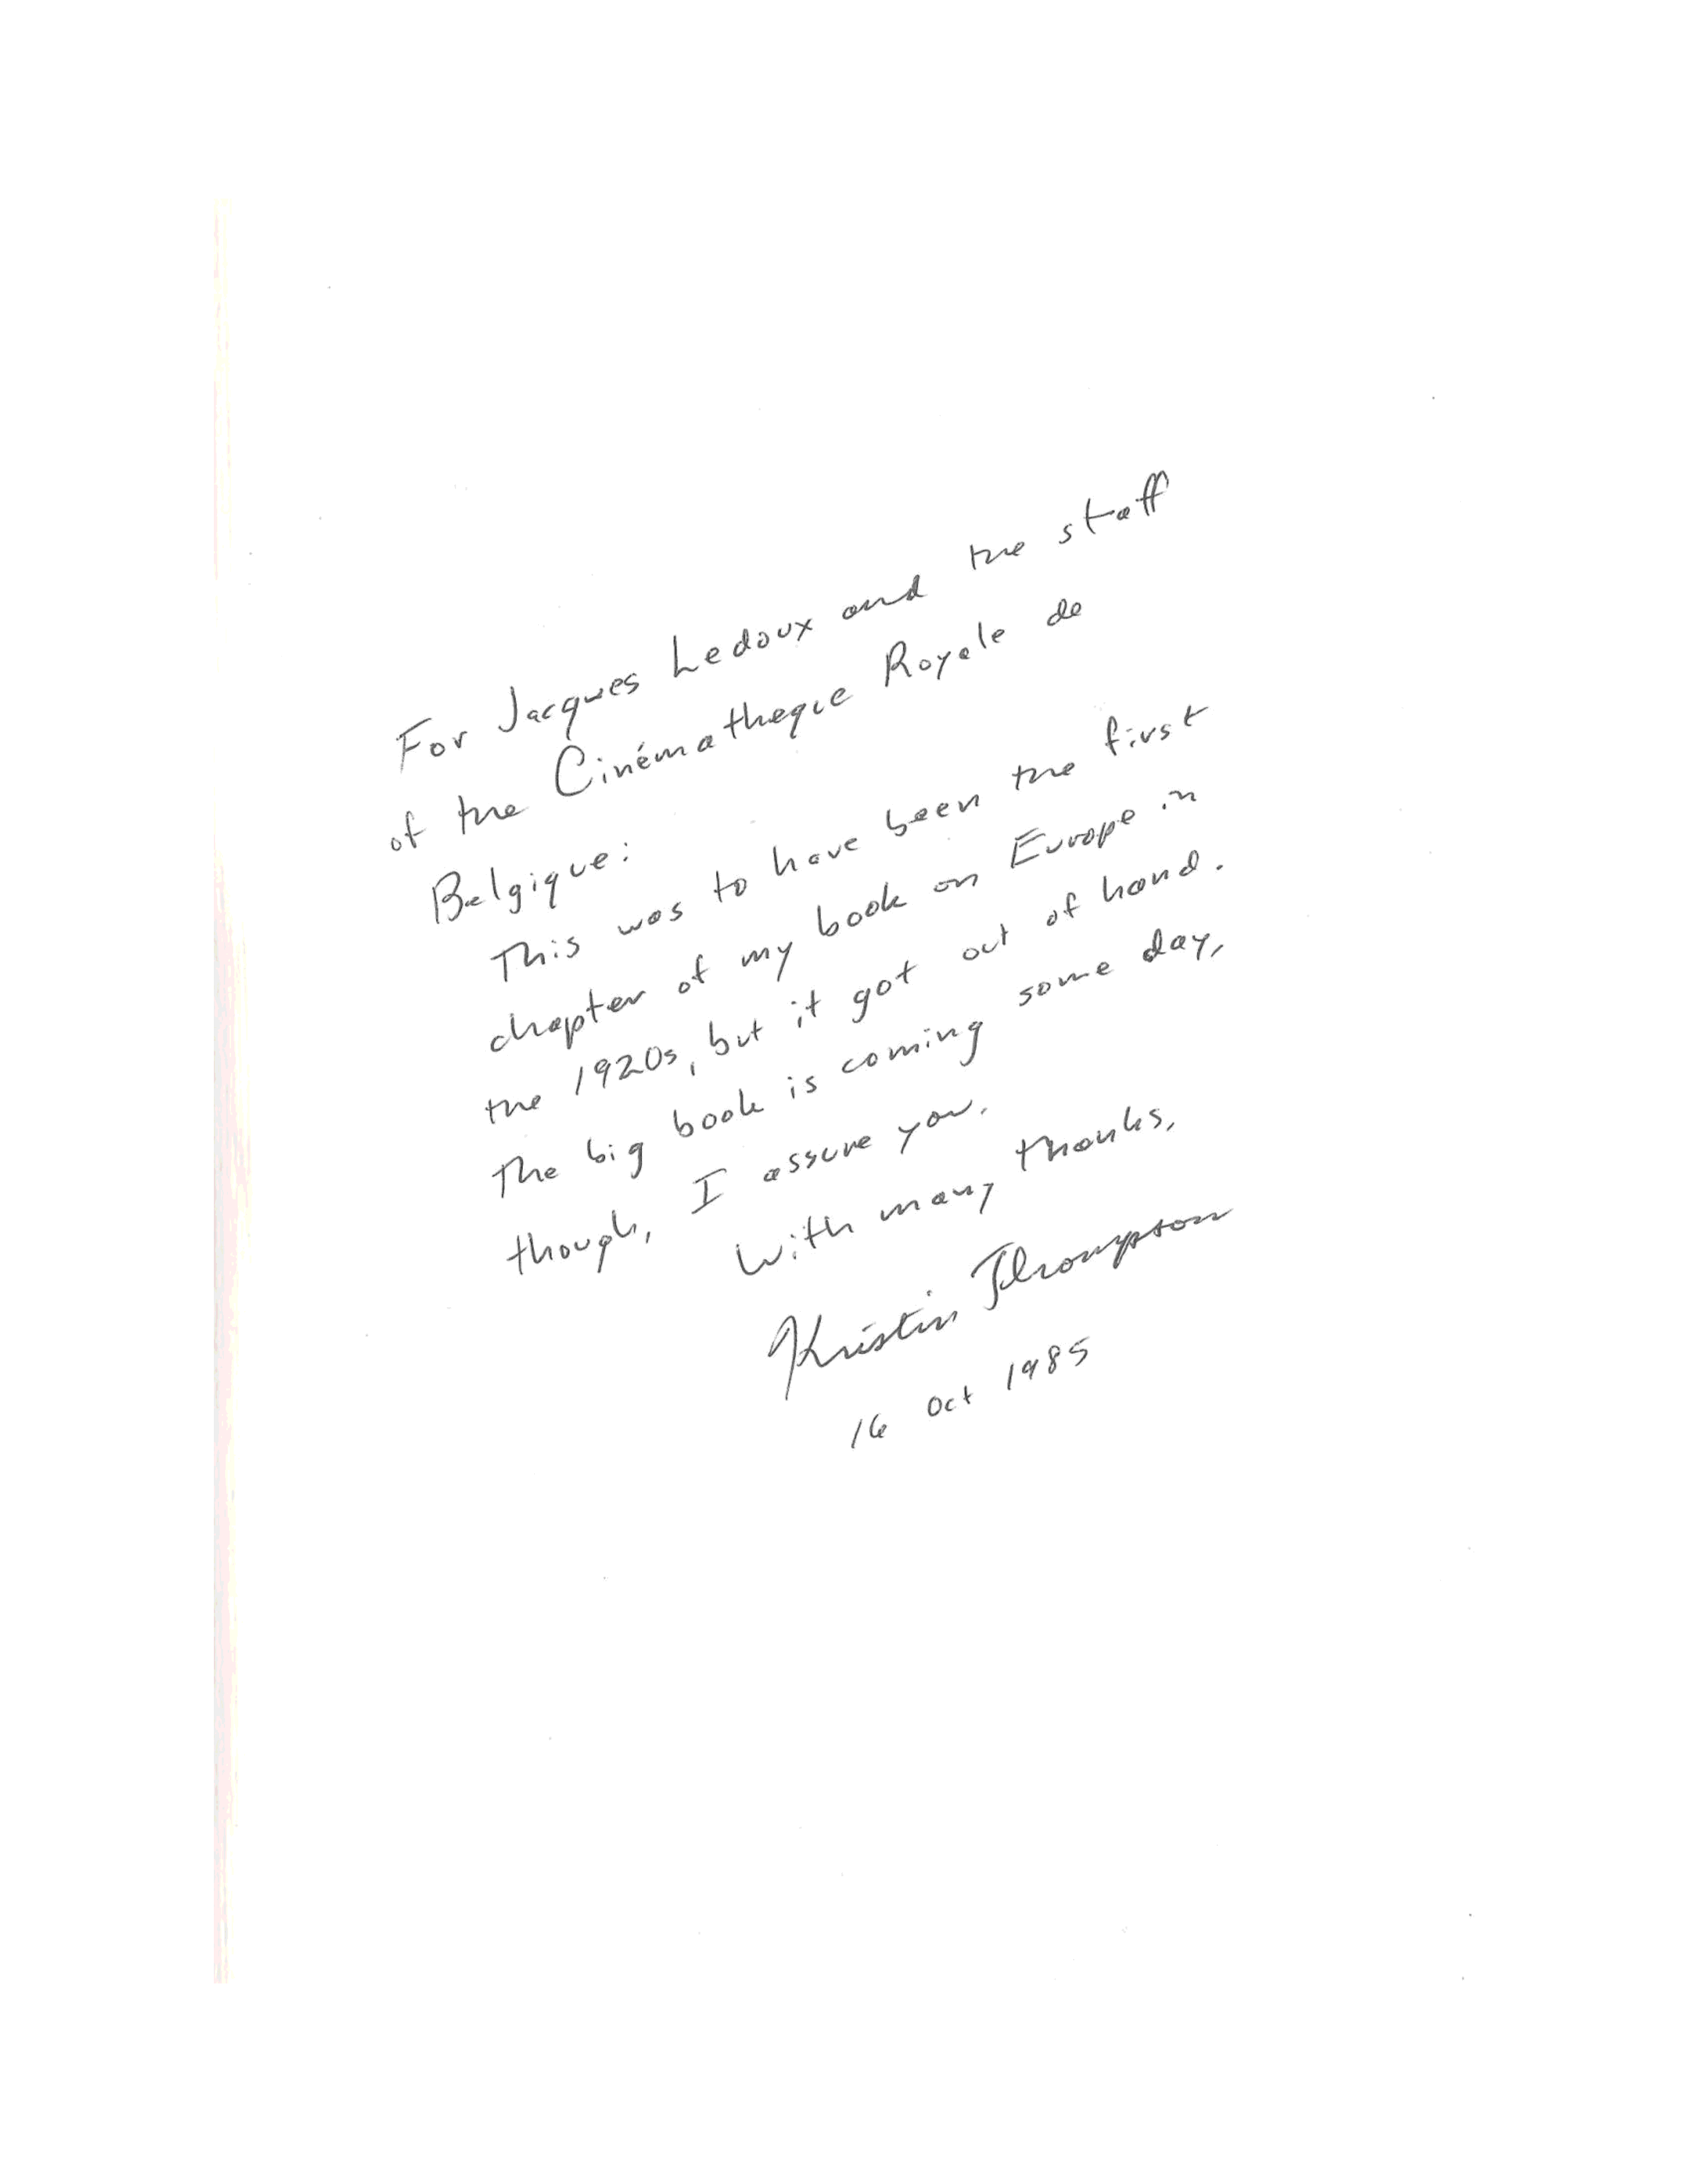 For Jacques Ledoux and the staff
of the Cinématheque Royale de
Belgique:
This was to have been the first
chapter of my book on Europe in
the 1920s, but it got out of hand.
The big book is coming some day,
though, I assure you.
With many thanks,
Kristin Thompson
16 Oct 1985